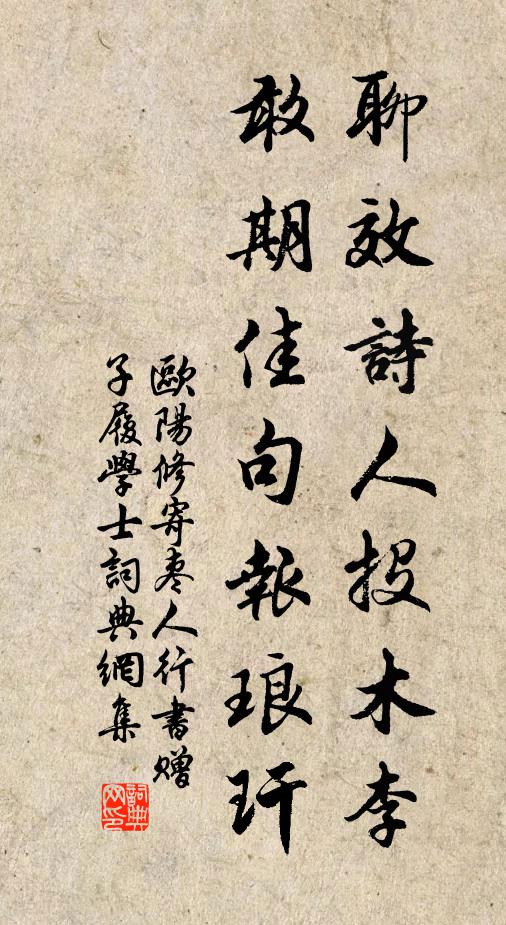 聊效詩人投木李
敢期佳句報琅玕
歐陽修寄棗人行書贈
子履學士詞典網集
詞典
网印